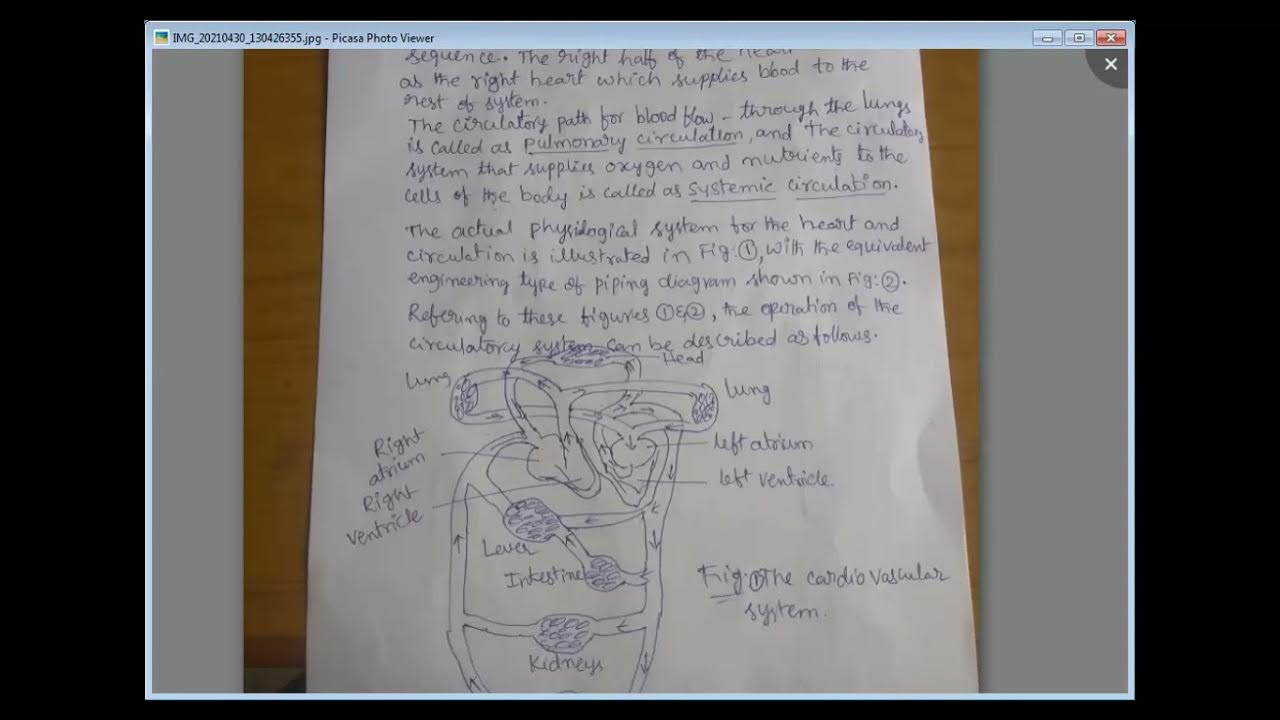 IMG_20210430_130426355.jpg - Picasa Photo Viewer
sequence. The right half of the heart
as the right heart which supplies blood to the
rest of system.
The cirulatory path for blood flow - through the lungs
is called as pulmonary circulation, and the circulatory
system that supplies oxygen and nutrients to the
cells of the body is called as systemic circulation.
The actual physilogical system for the heart and
circulation is illustrated in Fig:①, with the equivalent
engineering type of piping diagram shown in Fig:②.
Refering to these figures ①&②, the operation of the
circulatory system can be described as follows.
Head
lung
lung
Right
atrium
left atrium
Right
ventricle
left ventricle
Lever
Intestine
Fig:① The cardio vascular
system.
Kidneys